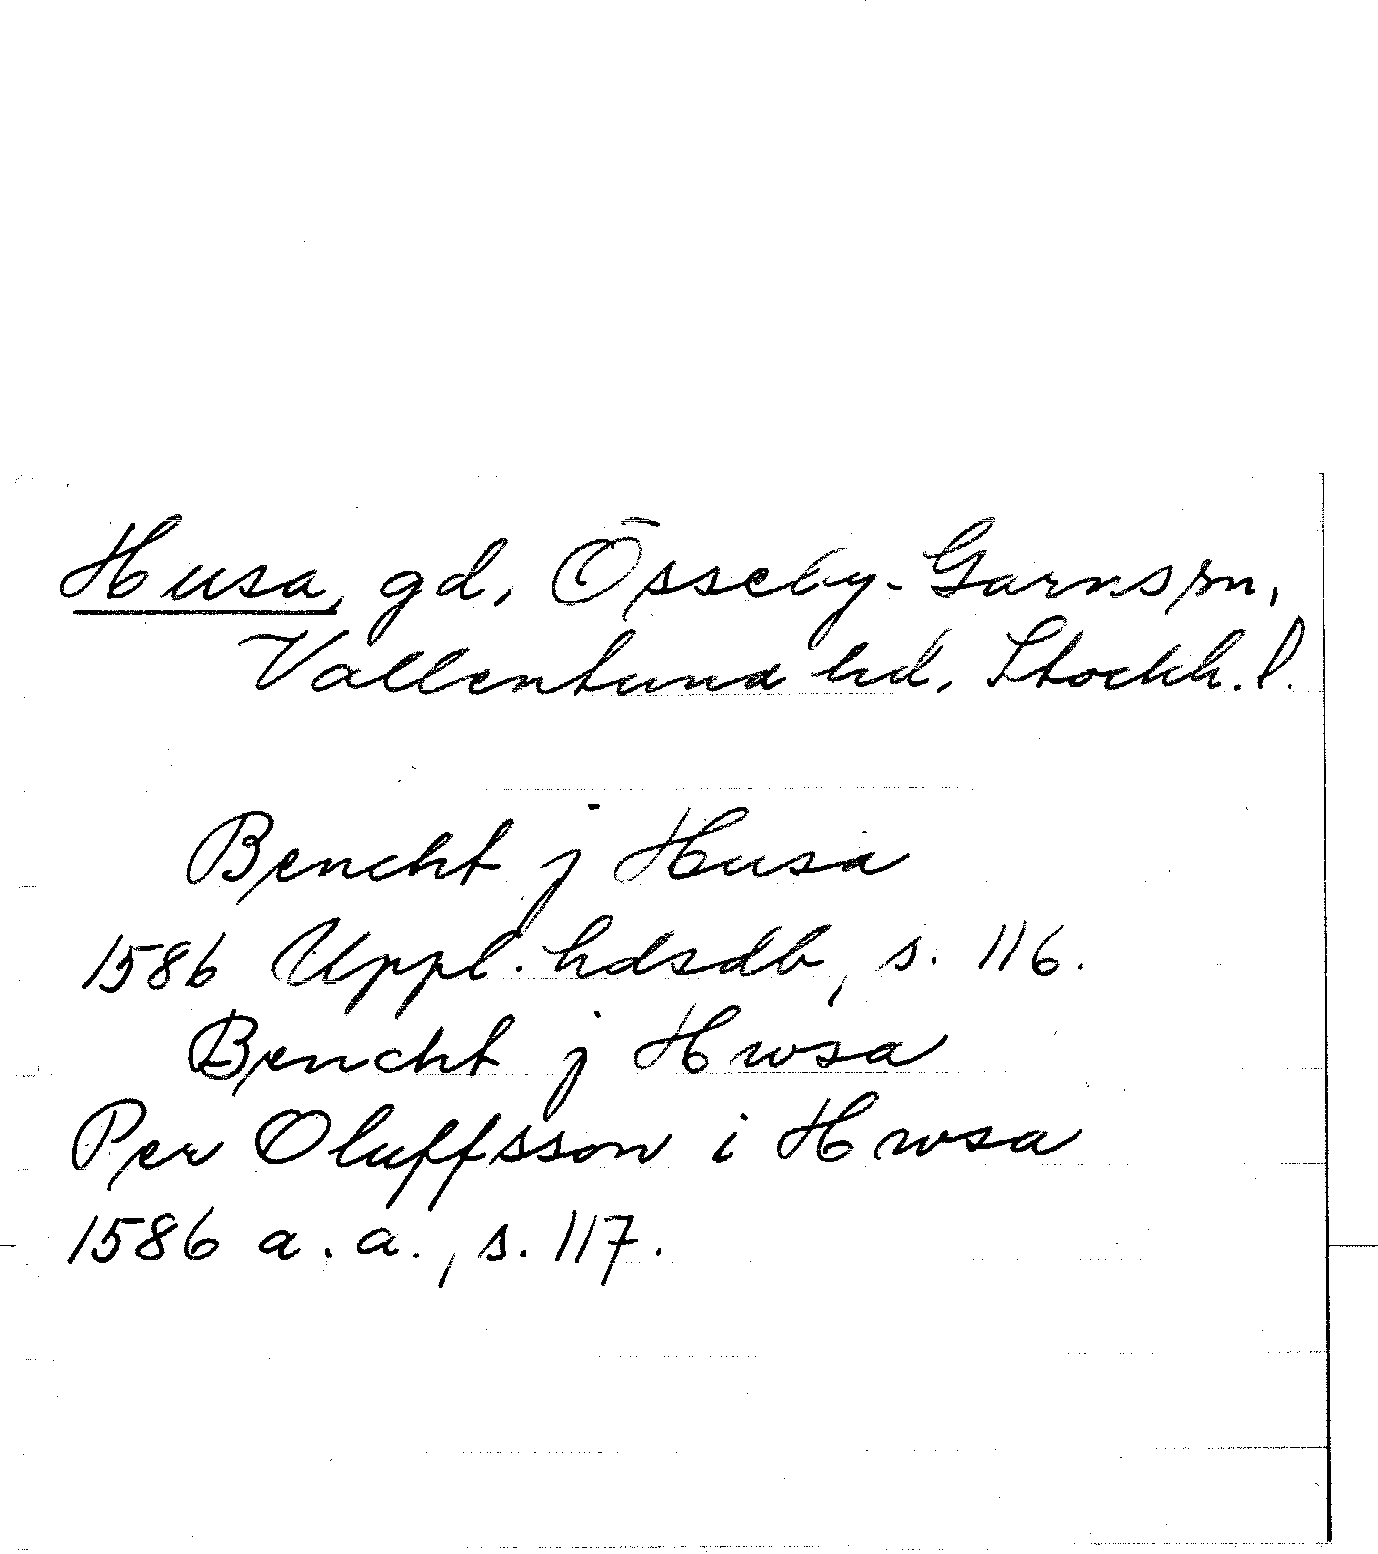 Husa, gd, Össeby-Garns sn,
Vallentuna hd, Stockh. l.
Bencht j Husa
1586 Uppl. hdsdb, s. 116.
Bencht j Hwsa
Per Oluffsson i Hwsa
1586 a. a., s. 117.